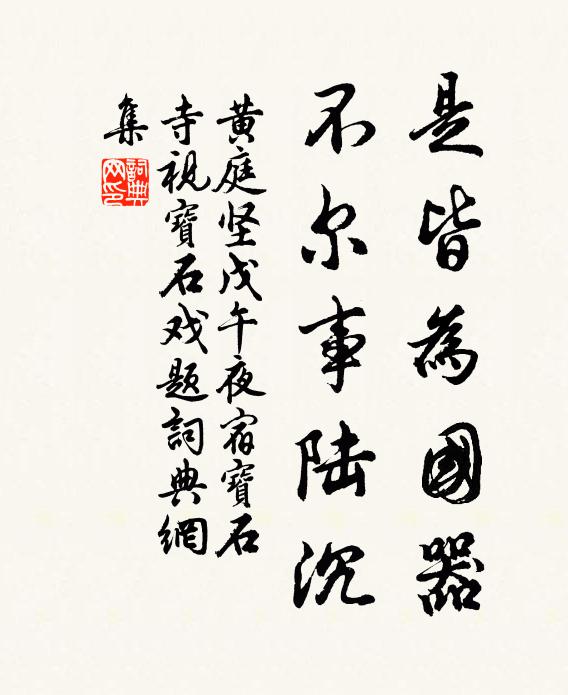 是皆為國器
不尔事陆沉
黄庭坚戊午夜宿寶石
寺視寶石戏题詞典網
集
詞典
网印